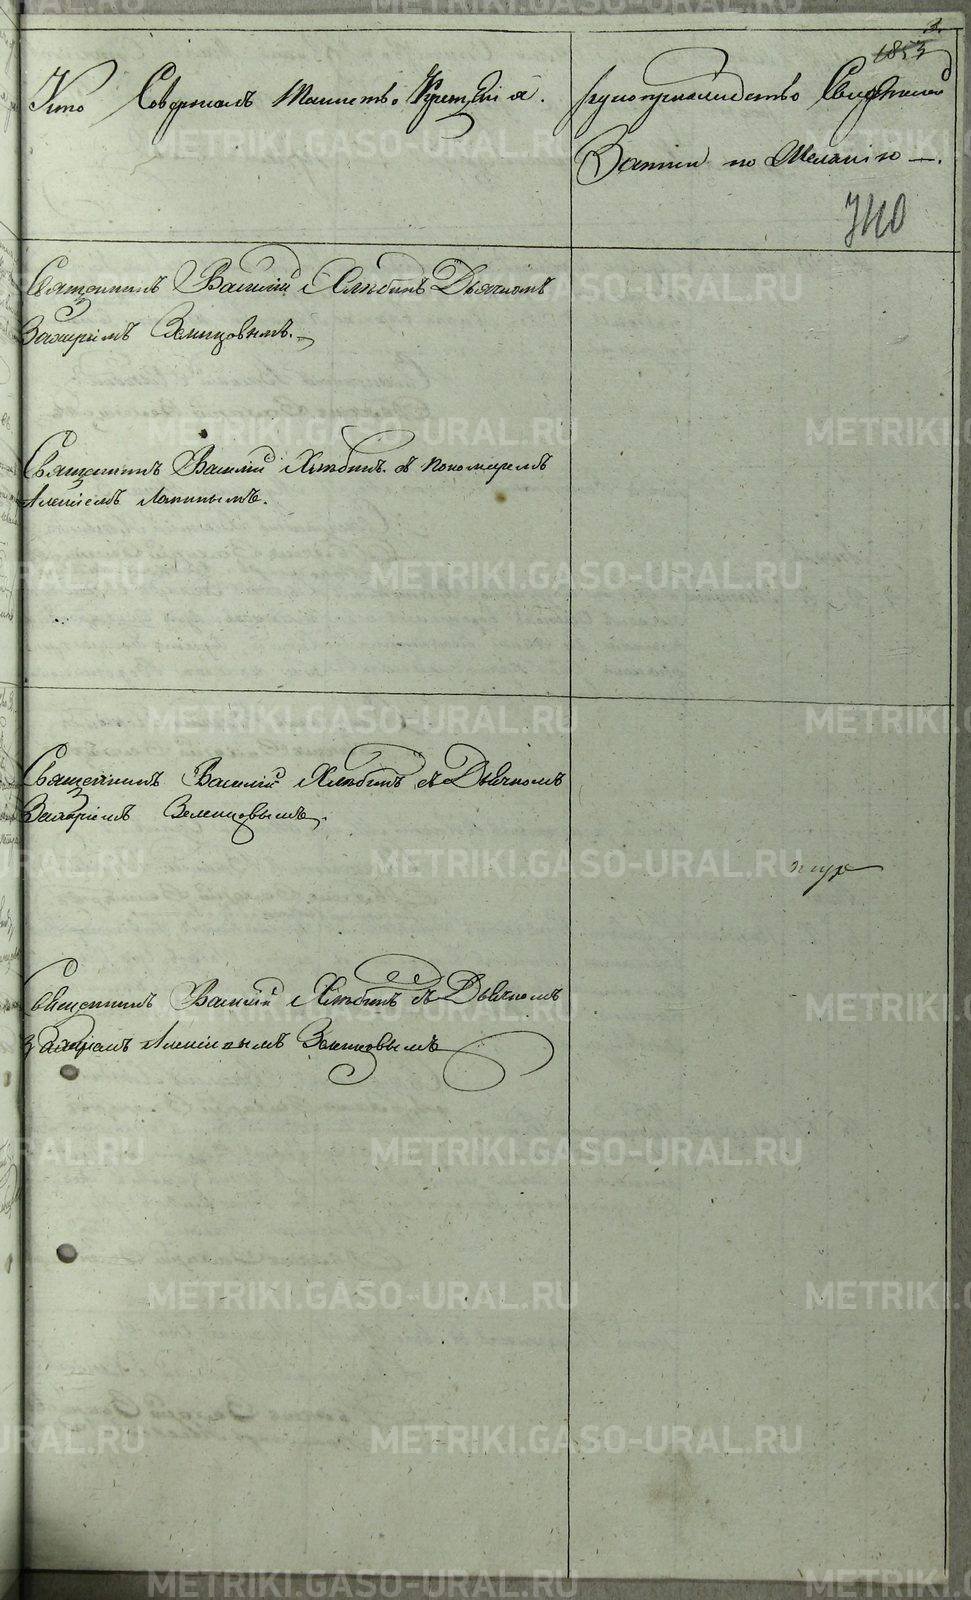 3.
1853
Кто Совершалъ Таинство Крещенія.
рукоприкладство Свидѣтелей
Записи по Желанію —.
740
Священникъ Василій Хлѣбинъ Дьячкомъ
Захаріемъ Зеленцовымъ.
Священникъ Василій Хлѣбинъ съ пономаремъ
Алексіемъ Лапинымъ.
Священникъ Василій Хлѣбинъ съ Дьячкомъ
Захаріемъ Зеленцовымъ.
Священникъ Василій Хлѣбинъ съ Дьячкомъ
Захаріемъ Алексіевымъ Зеленцовымъ
METRIKI.GASO-URAL.RU